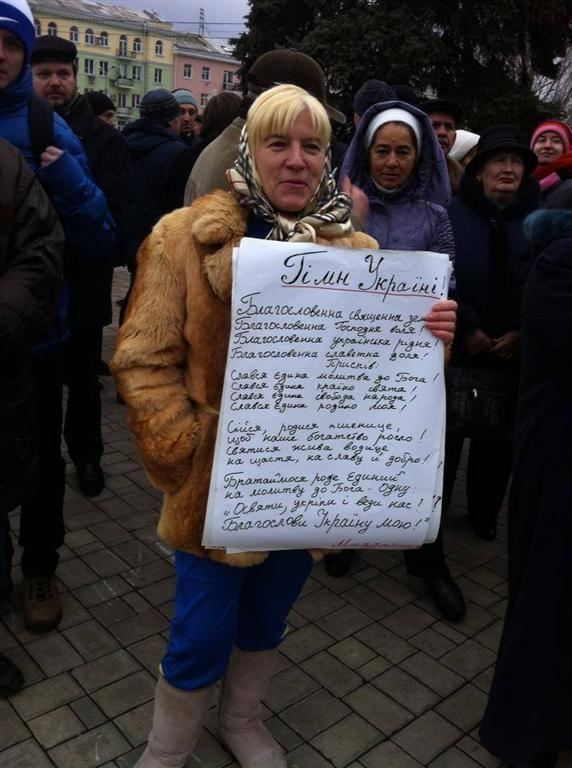 Гімн Україні!
Благословенна священна зем
Благословенна Господня воля!
Благословенна українська рідня!
Благословенна славетна доля!
Приспів:
Слався єдина молитва до Бога!
Слався єдина країно свята!
Слався єдина свобода народа!
Слався єдина родино моя!
Сійся, родися пшенице,
щоб наше богатство росло!
Святися жива водице
на щастя, на славу й добро!
Братаймося роде Єдиний
на молитву до Бога - Одну:
"Освяти, укріпи і веди нас!
Благослови Україну мою!"